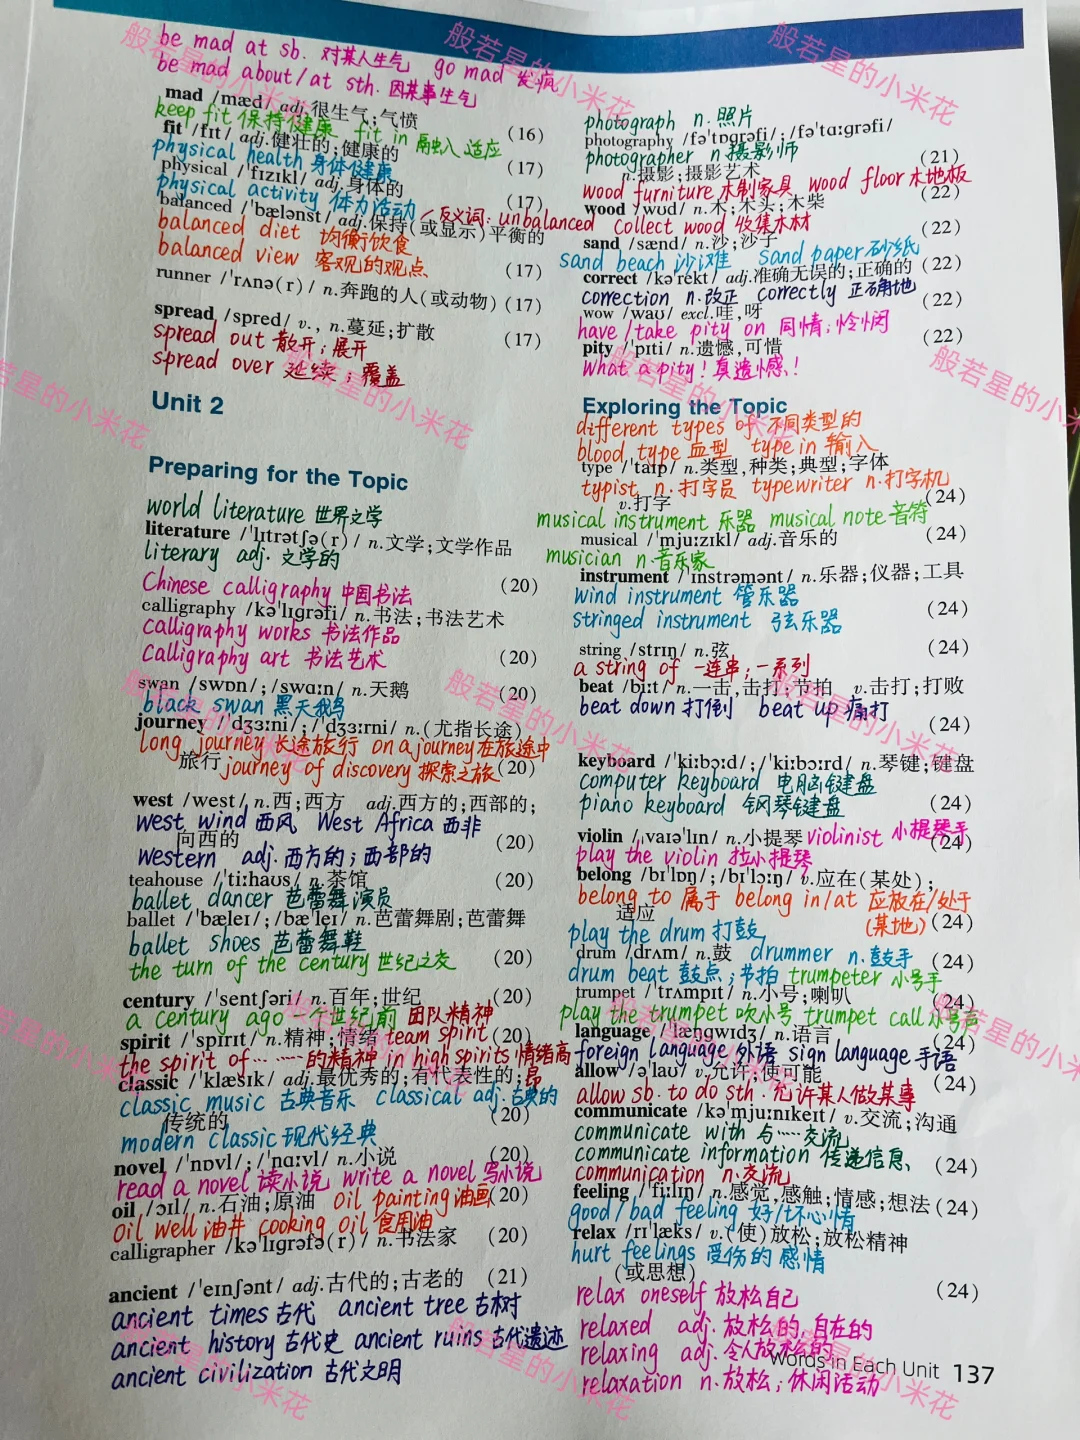 be mad at sb. 对某人生气 go mad 发疯
be mad about/at sth. 因某事生气
mad /mæd/ adj.很生气;气愤 (16)
keep fit 保持健康 fit in 融入,适应
fit /fɪt/ adj.健壮的;健康的 (17)
physical health 身体健康
physical /ˈfɪzɪkl/ adj.身体的 (17)
physical activity 体力活动 反义词: unbalanced
balanced /ˈbælənst/ adj.保持(或显示)平衡的
balanced diet 均衡饮食
balanced view 客观的观点 (17)
runner /ˈrʌnə(r)/ n.奔跑的人(或动物) (17)
spread /spred/ v., n.蔓延;扩散 (17)
spread out 散开;展开
spread over 延续;覆盖
Unit 2
Preparing for the Topic
world literature 世界文学
literature /ˈlɪtrətʃə(r)/ n.文学;文学作品
literary adj. 文学的
Chinese calligraphy 中国书法 (20)
calligraphy /kəˈlɪɡrəfi/ n.书法;书法艺术
calligraphy works 书法作品
calligraphy art 书法艺术 (20)
swan /swɒn/;/swɑːn/ n.天鹅 (20)
black swan 黑天鹅
journey /ˈdʒɜːni/;/ˈdʒɜːrni/ n.(尤指长途)
long journey 长途旅行 on a journey 在旅途中
旅行 journey of discovery 探索之旅 (20)
west /west/ n.西;西方 adj.西方的;西部的;
west wind 西风 West Africa 西非
向西的 (20)
western adj.西方的;西部的
teahouse /ˈtiːhaʊs/ n.茶馆 (20)
ballet dancer 芭蕾舞演员
ballet /ˈbæleɪ/;/bæˈleɪ/ n.芭蕾舞剧;芭蕾舞
ballet shoes 芭蕾舞鞋
the turn of the century 世纪之交 (20)
century /ˈsentʃəri/ n.百年;世纪 (20)
a century ago 一个世纪前 团队精神
spirit /ˈspɪrɪt/ n.精神;情绪 team spirit (20)
the spirit of…… ……的精神 in high spirits 情绪高昂
classic /ˈklæsɪk/ adj.最优秀的;有代表性的;
classic music 古典音乐 classical adj.古典的
传统的 (20)
modern classic 现代经典
novel /ˈnɒvl/;/ˈnɑːvl/ n.小说 (20)
read a novel 读小说 write a novel 写小说
oil /ɔɪl/ n.石油;原油 oil painting 油画 (20)
oil well 油井 cooking oil 食用油
calligrapher /kəˈlɪɡrəfə(r)/ n.书法家 (20)
ancient /ˈeɪnʃənt/ adj.古代的;古老的 (21)
ancient times 古代 ancient tree 古树
ancient history 古代史 ancient ruins 古代遗迹
ancient civilization 古代文明
photograph n.照片
photography /fəˈtɒɡrəfi/;/fəˈtɑːɡrəfi/
photographer n.摄影师 (21)
n.摄影;摄影艺术
wood furniture 木制家具 wood floor 木地板
wood /wʊd/ n.木;木头;木柴 (22)
collect wood 收集木材
sand /sænd/ n.沙;沙子 (22)
sand beach 沙滩 sand paper 砂纸
correct /kəˈrekt/ adj.准确无误的;正确的 (22)
correction n.改正 correctly 正确地
wow /waʊ/ excl.哇,呀 (22)
have/take pity on 同情;怜悯
pity /ˈpɪti/ n.遗憾,可惜 (22)
what a pity! 真遗憾!
Exploring the Topic
different types of 不同类型的
blood type 血型 type in 输入
type /taɪp/ n.类型,种类;典型;字体
typist n.打字员 typewriter n.打字机
v.打字 (24)
musical instrument 乐器 musical note 音符
musical /ˈmjuːzɪkl/ adj.音乐的 (24)
musician n.音乐家
instrument /ˈɪnstrəmənt/ n.乐器;仪器;工具
wind instrument 管乐器 (24)
stringed instrument 弦乐器
string /strɪŋ/ n.弦 (24)
a string of 一连串;一系列
beat /biːt/ n.一击,击打;节拍 v.击打;打败
beat down 打倒 beat up 痛打 (24)
keyboard /ˈkiːbɔːd/;/ˈkiːbɔːrd/ n.琴键;键盘
computer keyboard 电脑键盘
piano keyboard 钢琴键盘 (24)
violin /ˌvaɪəˈlɪn/ n.小提琴 violinist 小提琴手 (24)
play the violin 拉小提琴
belong /bɪˈlɒŋ/;/bɪˈlɔːŋ/ v.应在(某处);
belong to 属于 belong in/at 应放在/处于
适应 (某地) (24)
play the drum 打鼓
drum /drʌm/ n.鼓 drummer n.鼓手 (24)
drum beat 鼓点;节拍 trumpeter 小号手
trumpet /ˈtrʌmpɪt/ n.小号;喇叭 (24)
play the trumpet 吹小号 trumpet call 小号声
language /ˈlæŋɡwɪdʒ/ n.语言 (24)
foreign language 外语 sign language 手语
allow /əˈlaʊ/ v.允许;使可能 (24)
allow sb. to do sth. 允许某人做某事
communicate /kəˈmjuːnɪkeɪt/ v.交流;沟通
communicate with 与……交流
communicate information 传递信息 (24)
communication n.交流
feeling /ˈfiːlɪŋ/ n.感觉,感触;情感;想法 (24)
good/bad feeling 好/坏心情
relax /rɪˈlæks/ v.(使)放松;放松精神
hurt feelings 受伤的感情
(或思想) (24)
relax oneself 放松自己
relaxed adj.放松的,自在的
relaxing adj.令人放松的
relaxation n.放松;休闲活动
Words in Each Unit 137
般若星的小米花